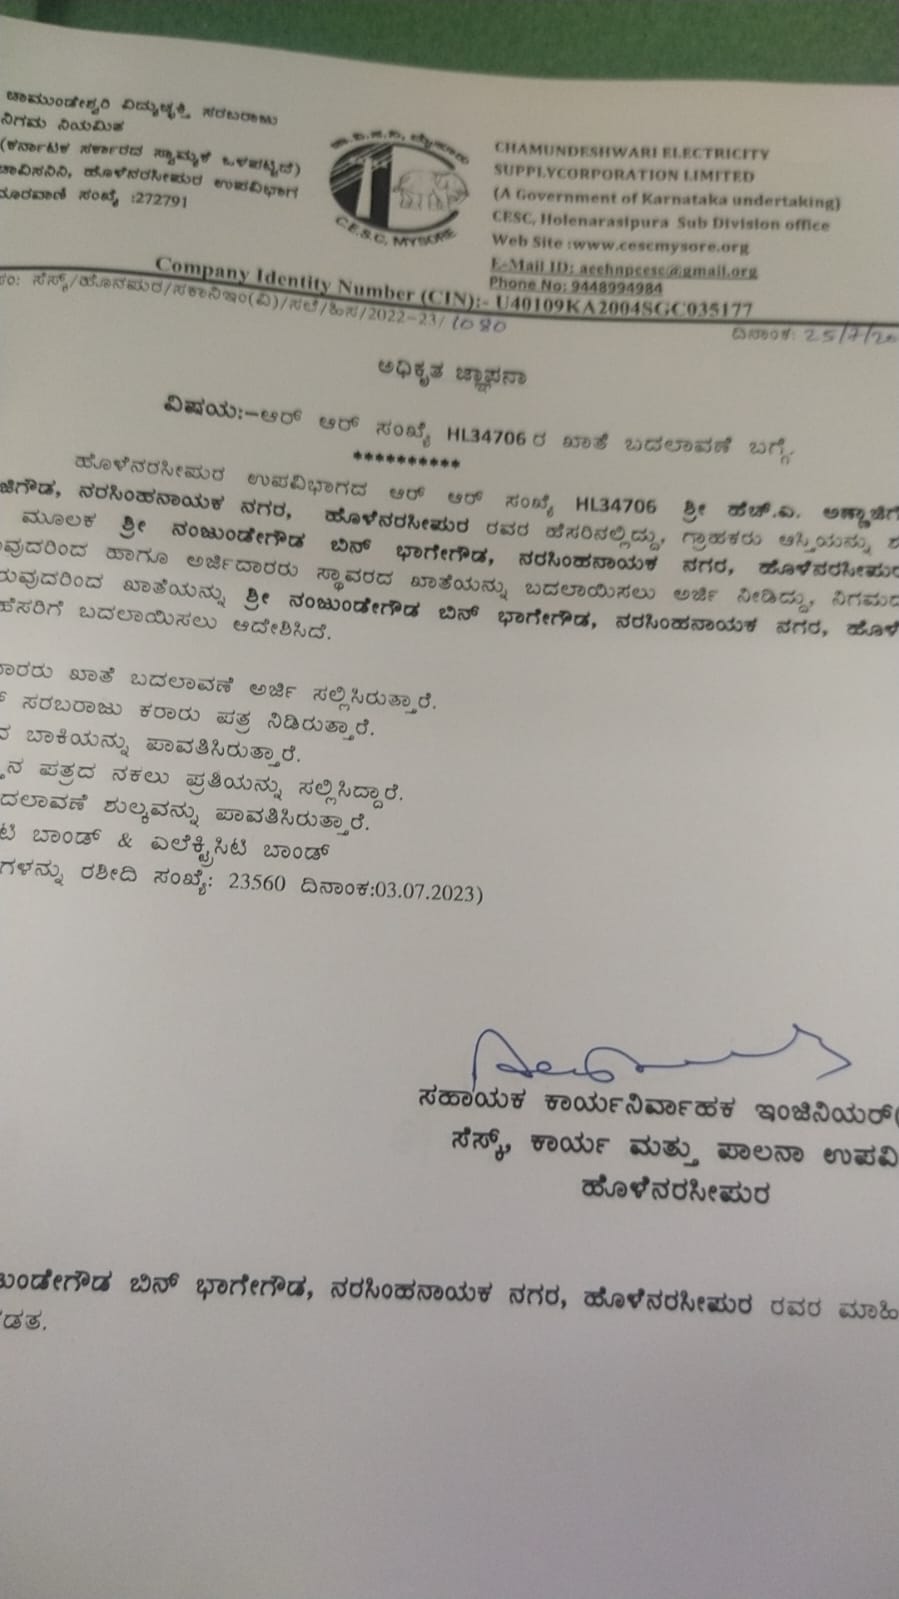 ಚಾಮುಂಡೇಶ್ವರಿ ವಿದ್ಯುಚ್ಛಕ್ತಿ ಸರಬರಾಜು
ನಿಗಮ ನಿಯಮಿತ
(ಕರ್ನಾಟಕ ಸರ್ಕಾರದ ಸ್ವಾಮ್ಯಕೆ ಒಳಪಟ್ಟಿದೆ)
ಚಾವಿಸನಿನಿ, ಹೊಳೆನರಸೀಪುರ ಉಪವಿಭಾಗ
ದೂರವಾಣಿ ಸಂಖ್ಯೆ :272791
C.E.S.C, MYSORE
CHAMUNDESHWARI ELECTRICITY
SUPPLYCORPORATION LIMITED
(A Government of Karnataka undertaking)
CESC, Holenarasipura Sub Division office
Web Site :www.cescmysore.org
E-Mail ID: aeehnpcesc@gmail.org
Phone No: 9448994984
Company Identity Number (CIN):- U40109KA2004SGC035177
ಸಂ: ಸೆಸ್ಕ್/ಹೊನಪುರ/ಸಕಾನಿಇಂ(ವಿ)/ಸಲೆ/ಹಿಸ/2022-23/ 1080
ದಿನಾಂಕ: 25/7/20
ಅಧಿಕೃತ ಜ್ಞಾಪನಾ
ವಿಷಯ:-ಆರ್ ಆರ್ ಸಂಖ್ಯೆ HL34706 ರ ಖಾತೆ ಬದಲಾವಣೆ ಬಗ್ಗೆ.
**********
ಹೊಳೆನರಸೀಪುರ ಉಪವಿಭಾಗದ ಆರ್ ಆರ್ ಸಂಖ್ಯೆ HL34706 ಶ್ರೀ ಹೆಚ್.ಎ. ಅಣ್ಣಾಜಿಗೌ
ಜಿಗೌಡ, ನರಸಿಂಹನಾಯಕ ನಗರ, ಹೊಳೆನರಸೀಪುರ ರವರ ಹೆಸರಿನಲ್ಲಿದ್ದು, ಗ್ರಾಹಕರು ಆಸ್ತಿಯನ್ನು
ಮೂಲಕ ಶ್ರೀ ನಂಜುಂಡೇಗೌಡ ಬಿನ್ ಭಾಗೇಗೌಡ, ನರಸಿಂಹನಾಯಕ ನಗರ, ಹೊಳೆನರಸೀಪುರ
ವುದರಿಂದ ಹಾಗೂ ಅರ್ಜಿದಾರರು ಸ್ಥಾವರದ ಖಾತೆಯನ್ನು ಬದಲಾಯಿಸಲು ಅರ್ಜಿ ನೀಡಿದ್ದು, ನಿಗಮದ
ರುವುದರಿಂದ ಖಾತೆಯನ್ನು ಶ್ರೀ ನಂಜುಂಡೇಗೌಡ ಬಿನ್ ಭಾಗೇಗೌಡ, ನರಸಿಂಹನಾಯಕ ನಗರ, ಹೊಳೆ
ಹೆಸರಿಗೆ ಬದಲಾಯಿಸಲು ಆದೇಶಿಸಿದೆ.
ಾರರು ಖಾತೆ ಬದಲಾವಣೆ ಅರ್ಜಿ ಸಲ್ಲಿಸಿರುತ್ತಾರೆ.
ಸರಬರಾಜು ಕರಾರು ಪತ್ರ ನಿಡಿರುತ್ತಾರೆ.
ಬಾಕಿಯನ್ನು ಪಾವತಿಸಿರುತ್ತಾರೆ.
ಪತ್ರದ ನಕಲು ಪ್ರತಿಯನ್ನು ಸಲ್ಲಿಸಿದ್ದಾರೆ.
ದಲಾವಣೆ ಶುಲ್ಕವನ್ನು ಪಾವತಿಸಿರುತ್ತಾರೆ.
ಟಿ ಬಾಂಡ್ & ಎಲೆಕ್ಟ್ರಿಸಿಟಿ ಬಾಂಡ್
ಗಳನ್ನು ರಶೀದಿ ಸಂಖ್ಯೆ: 23560 ದಿನಾಂಕ:03.07.2023)
ಸಹಾಯಕ ಕಾರ್ಯನಿರ್ವಾಹಕ ಇಂಜಿನಿಯರ್(
ಸೆಸ್ಕ್, ಕಾರ್ಯ ಮತ್ತು ಪಾಲನಾ ಉಪವಿ
ಹೊಳೆನರಸೀಪುರ
ಜುಂಡೇಗೌಡ ಬಿನ್ ಭಾಗೇಗೌಡ, ನರಸಿಂಹನಾಯಕ ನಗರ, ಹೊಳೆನರಸೀಪುರ ರವರ ಮಾಹಿ
ಕಡತ.